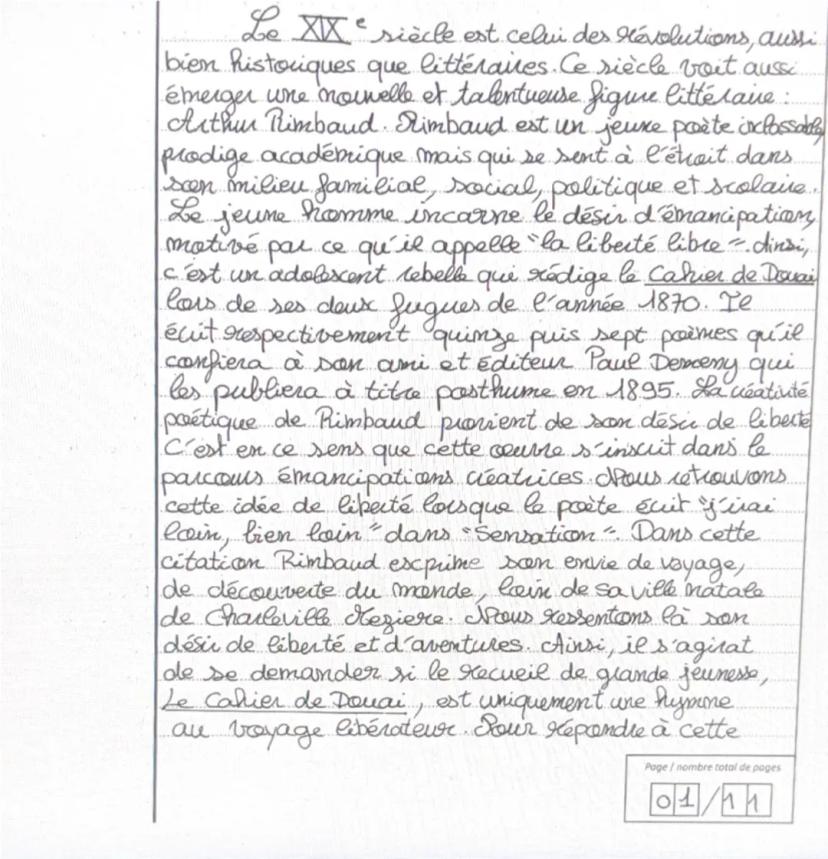 Le XIXe siècle est celui des révolutions, aussi
bien historiques que littéraires. Ce siècle voit aussi
émerger une nouvelle et talentueuse figure littéraire :
Arthur Rimbaud. Rimbaud est un jeune poète inclassable,
prodige académique mais qui se sent à l'étroit dans
son milieu familial, social, politique et scolaire.
Le jeune homme incarne le désir d'émancipation,
motivé par ce qu'il appelle "la liberté libre". Ainsi,
c'est un adolescent rebelle qui rédige le Cahier de Douai
lors de ses deux fugues de l'année 1870. Il
écrit respectivement quinze puis sept poèmes qu'il
confiera à son ami et éditeur Paul Demeny qui
les publiera à titre posthume en 1895. La créativité
poétique de Rimbaud provient de son désir de liberté
C'est en ce sens que cette œuvre s'inscrit dans le
parcours émancipations créatrices. Nous retrouvons
cette idée de liberté lorsque le poète écrit "j'irai
loin, bien loin" dans "Sensation". Dans cette
citation Rimbaud exprime son envie de voyage,
de découverte du monde, loin de sa ville natale
de Charleville Meziere. Nous ressentons là son
désir de liberté et d'aventures. Ainsi, il s'agirat
de se demander si le recueil de grande jeunesse,
Le Cahier de Douai, est uniquement une hymne
au voyage libérateur. Pour répondre à cette
Page / nombre total de pages
01/11